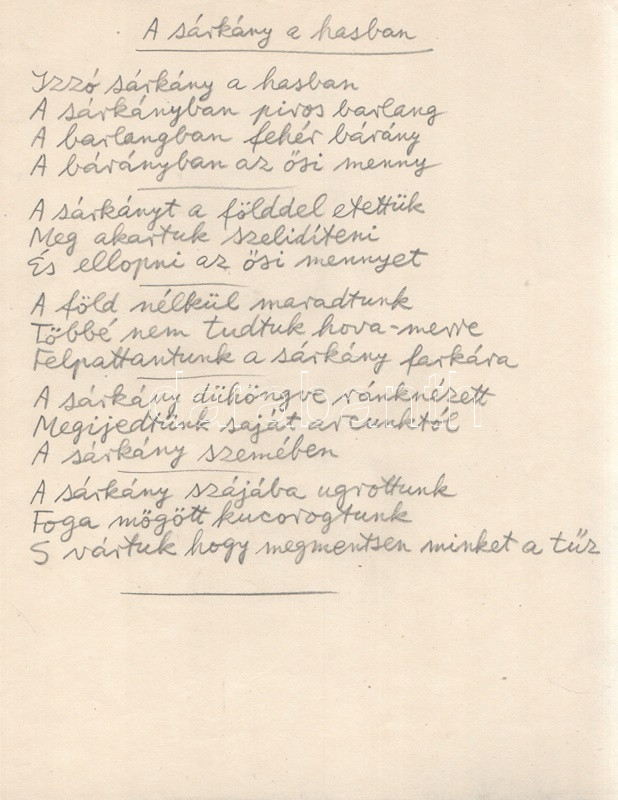 A sárkány a hasban
Izzó sárkány a hasban
A sárkányban piros barlang
A barlangban fehér bárány
A bárányban az ősi menny
A sárkányt a földdel etettük
Meg akartuk szelidíteni
És ellopni az ősi mennyet
A föld nélkül maradtunk
Többé nem tudtuk hova-merre
Felpattantunk a sárkány farkára
A sárkány dühöngve ránknézett
darabanth
Megijedtünk saját arcunktól
A sárkány szemében
A sárkány szájába ugrottunk
Foga mögött kucorogtunk
S vártuk hogy megmentsen minket a tűz